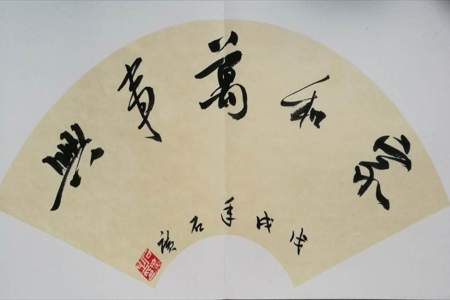 家和萬事興
戊戌年石